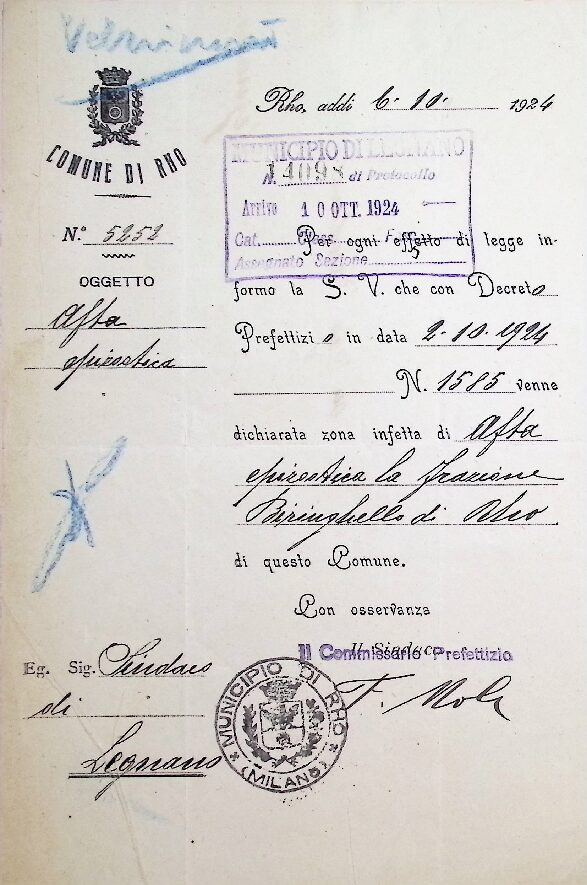 COMUNE DI RHO
Rho, addì 6. 10. 1924
MUNICIPIO DI LEGNANO
N. 14098 di Protocollo
Arrivo 10 OTT. 1924
Cat. Class. F
Assegnato Sezione
N.° 5252
OGGETTO
Afta
epizootica
Per ogni effetto di legge in-
formo la S. V. che con Decreto
Prefettizio in data 2-10-1924
N. 1585 venne
dichiarata zona infetta di Afta
epizootica la frazione
Biringhello di Rho
di questo Comune.
Con osservanza
Il Sindaco
Il Commissario Prefettizio
Eg. Sig. Sindaco
di
Legnano
MUNICIPIO DI RHO
(MILANO)